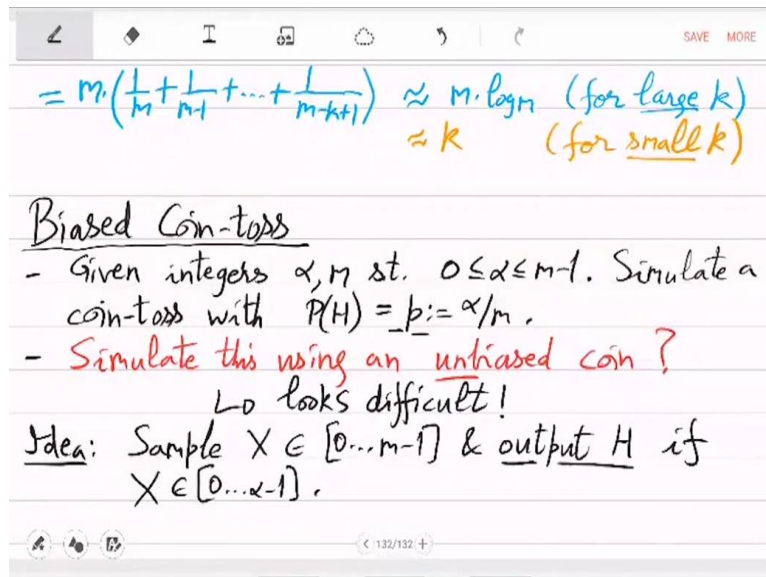 SAVE MORE
= m.(1/m + 1/m-1 + ... + 1/m-k+1) ≈ m.logm (for large k)
≈ k (for small k)
Biased Coin-toss
- Given integers α, m st. 0≤α≤m-1. Simulate a
coin-toss with P(H) = p := α/m.
- Simulate this using an unbiased coin?
↳ looks difficult!
Idea: Sample X ∈ [0...m-1] & output H if
X ∈ [0...α-1].
< 132/132 +